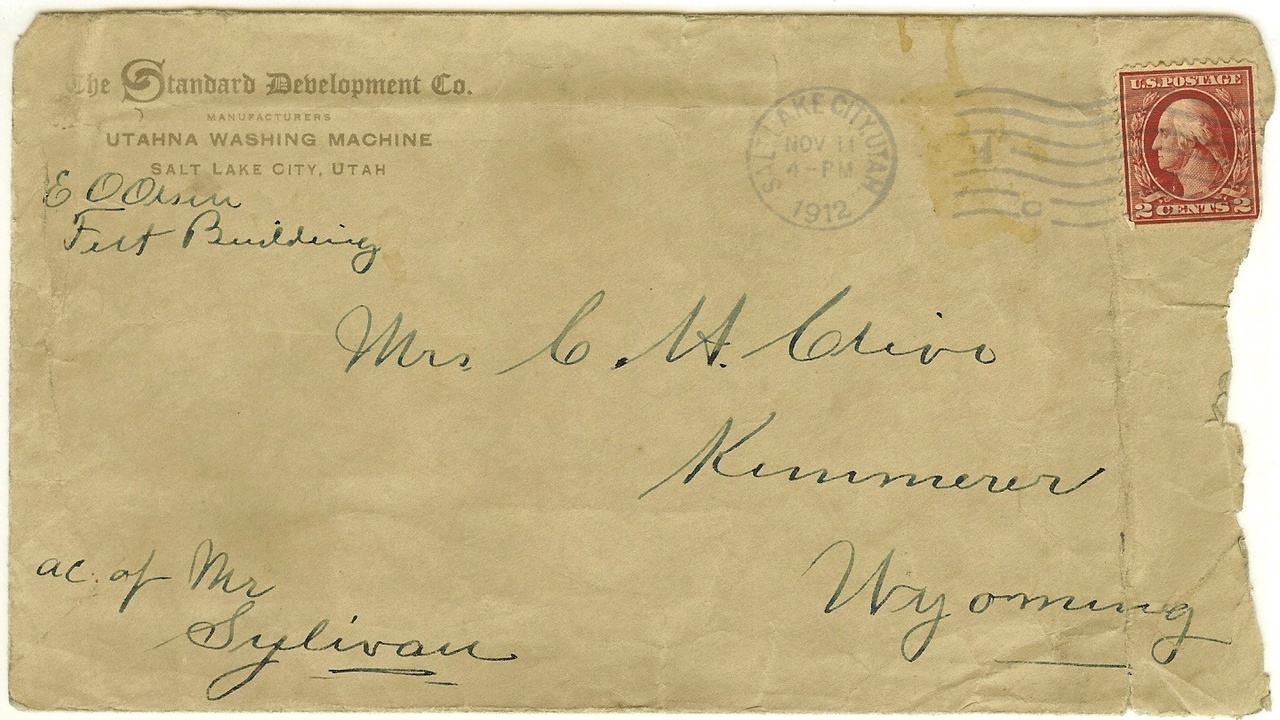 The Standard Development Co.
MANUFACTURERS
UTAHNA WASHING MACHINE
SALT LAKE CITY, UTAH
E O Olsen
Felt Building
SALT LAKE CITY, UTAH
NOV 11
4 - PM
1912
U.S. POSTAGE
2 CENTS 2
Mrs. C. H. Clive
Kemmerer
Wyoming
ac. of Mr
Sylivan